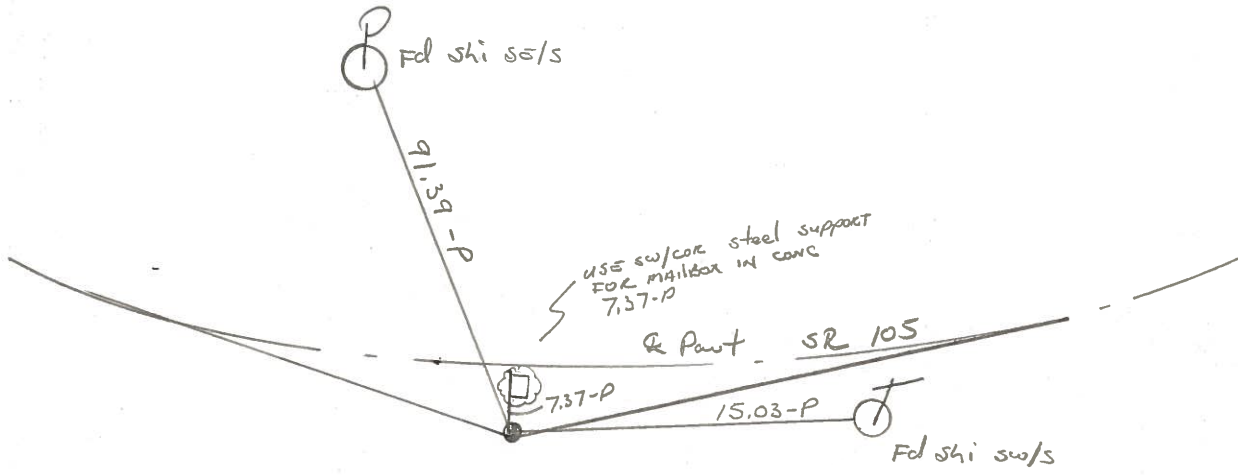 Fd shi SE/S
91.39-P
USE SW/COR steel support
FOR MAILBOX IN CONC
7.37-P
℄ Pavt SR 105
7.37-P
15.03-P
Fd shi SW/S